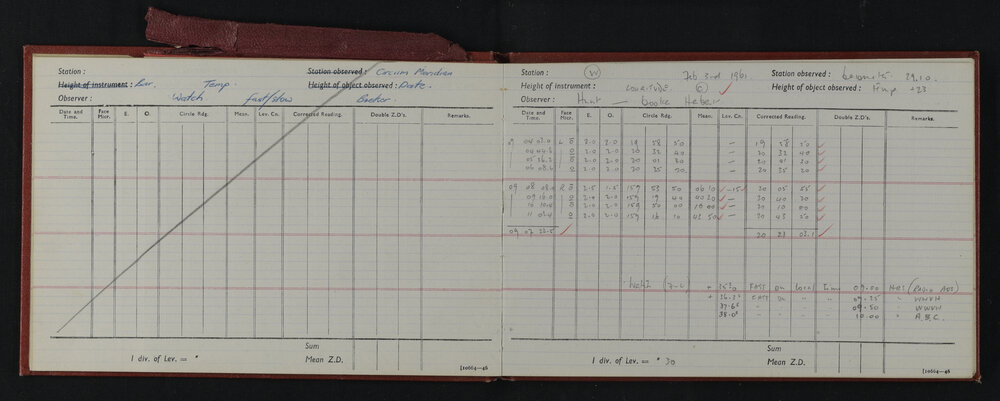 Station :
Station observed : Circum Meridian
Height of instrument : Bar. Temp.
Height of object observed : Date.
Observer : Watch fast/slow
Date and Time. Face Micr. E. O. Circle Rdg. Mean. Lev. Cn. Corrected Reading. Double Z.D's. Remarks.
Sum
1 div. of Lev. = "
Mean Z.D.
[10664—46
Station : W Feb 3rd 1961 Station observed : barometer 29.10.
Height of instrument : LONGITUDE Height of object observed : Temp +23
Observer :
Date and Time. Face Micr. E. O. Circle Rdg. Mean. Lev. Cn. Corrected Reading. Double Z.D's. Remarks.
09 04 03.0 L 2.0 2.0 19 58 50 — 19 58 50
20 32 40 — 20 32 40
2.0 2.0 20 01 20 —
06 08.0 2.0 2.0 20 35 20 — 20 35 20
09 08 08.0 R 2.5 1.5 159 53 50 06 10 —15 20 05 55
09 16.0 2.0 2.0 159 19 40 40 20 — 20 40 20
2.0 2.0 159 50 00 10 00 — 20 10 00
2.0 2.0 159 16 10 43 50 — 20 43 50
09 07 20 23 02.1
+ FAST on Local Time 09.00 HRS (Radio
+ FAST on " " 09.25 " WWVH
37.6 " " " " 09.50 " WWVH
38.0 " " " " 10.00 " A.B.C.
Sum
1 div. of Lev. = " 30
Mean Z.D.
[10664—46